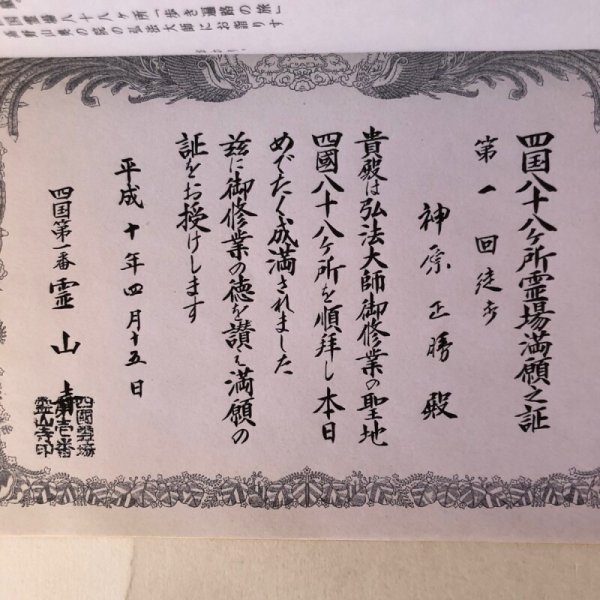 四国霊場八十八ヶ所一歩き遍路の旅に
高野山奥の院の弘法大師にお詣りす
四国八十八ヶ所霊場満願之証
第一回徒歩
神原正勝殿
貴殿は弘法大師御修業の聖地
四國八十八ヶ所を順拝し本日
めでたく成満されました
茲に御修業の徳を讃え満願の
証をお授けします
平成十年四月十五日
四国第一番霊山寺
四國霊場
第壱番
霊山寺印